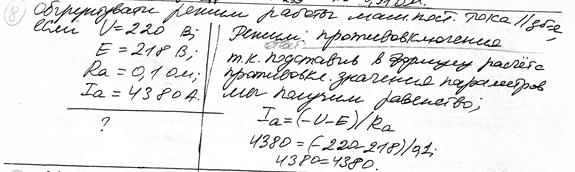 ⑧ Обгрунтувати режим работы маш. пост. тока // збж,
если U=220 В;
E = 218 В;
Ra = 0,1 Ом;
Ia = 4380А.
?
Режим: противовключение
т.к. подставив в формулу расчёта
противовкл. значения параметров
мы получим равенство;
Ia = (-U-E)/Ra
4380 = (-220-218)/0,1;
4380=4380.